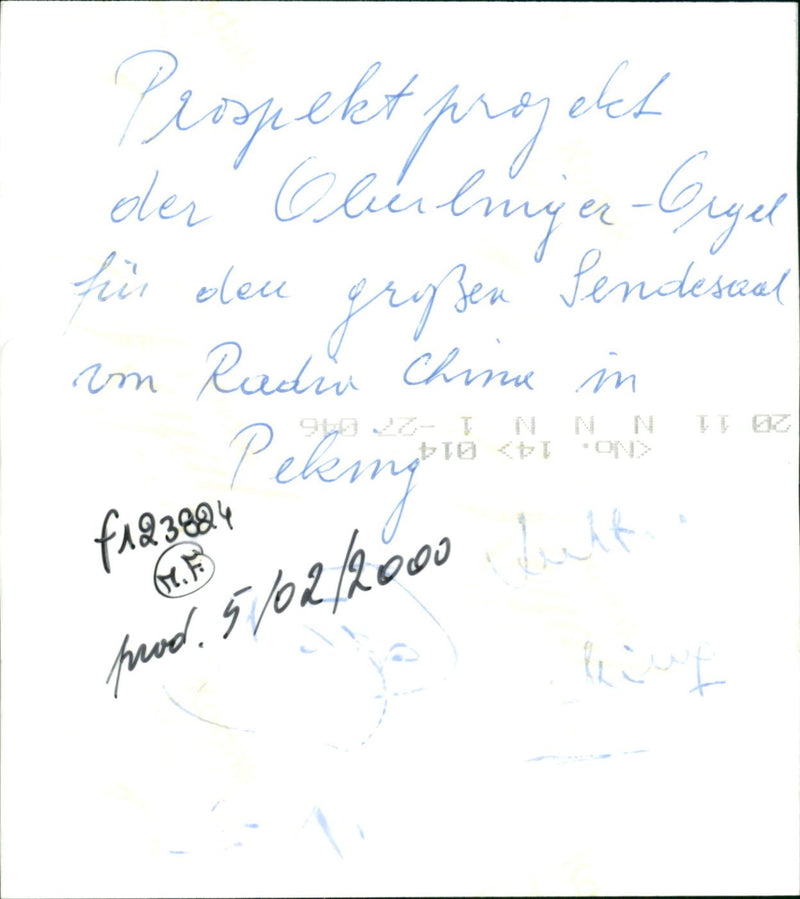 Prospektprojekt
der Oberlinger-Orgel
für den großen Sendesaal
von Radio China in
Peking
<No. 14> 014
20 11 N N N N 1 -27 046
f123824
M.F.
prod. 5/02/2000